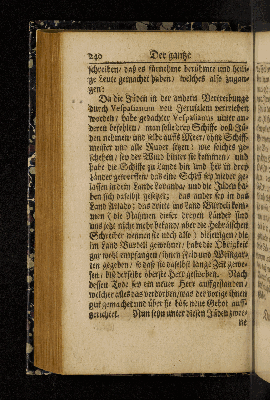 240 Der gantze
schreiben / daß es fürnehme berühmte und heili-
ge Leute gemachet haben / welches also zugan-
gen:
Da die Jüden in der andern Vertreibunge
durch Vespasianum von Jerusalem vertrieben
worden / habe gedachter Vespasianus unter an-
deren befohlen / man solle drey Schiffe voll Jü-
den nehmen und selbe auffs Meer / ohne Schiff-
meister und alle Ruder setzen: wie solches ge-
schehen / sey der Wind hinter sie kommen / und
habe die Schiffe zu Lande hin und her in drey
Länder getrieben / das eine Schiff sey nieder ge-
lassen in dem Lande Lovanda / und die Jüden ha-
ben sich daselbst gesetzet; das ander sey in das
Land Arlado; das dritte ins Land Burdeli kom-
men (die Nahmen dieser dreyen Länder sind
uns jetzt nicht mehr bekant / aber die Hebräischen
Schreiber nennen sie noch also) diejenigen / die
im Land Burdeli gewohnet / habe die Obrigkeit
gar wohl empfangen / ihnen Feld und Weingär-
ten gegeben / so daß sie daselbst lange Zeit gewe-
sen / biß derselbe oberste Herr gestorben. Nach
dessen Tode sey ein neuer Herr auffgestanden /
welcher alles das verdorben / was der vorige ihnen
gut gemachet und über sie böse neue Gebot auff-
gerichtet. Nun seyn unter diesen Jüden zwee-
ne